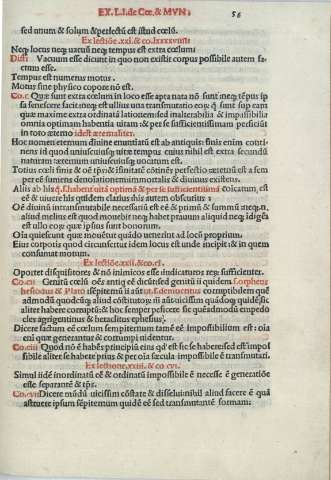 EX. L. I. de Cœ. & MVN.
56
sed unum & solum & perfectū est istud cœlū.
Ex lectiōe .xxi. & co.
Neq; locus neq; uacuū neq; tempus est extra cœlum
Diffi Vacuum esse dicunt in quo non existit corpus possibile autem
ctum esse.
Tempus est numerus motur.
Motur sine physico corpore nō est.
Co.c Quæ sunt extra cœlum in loco esse apta nata nō sunt neq; tēpus ip
sa senescere facit neq; est ullius una transmutatio eorū q̄ sunt sup eam
quæ maxime extra ordinata lationem sed inalterabilia & impassibilia
omnium optimam habentia uitam & per se sufficientissimam
in toto æterno idest æternaliter.
Hoc nomen eternum diuine enuntiatū est ab antiquis: finis enim conti
nens id quod uniuscuiusq; uite tempus cuius nihil est extra secundū
naturam æternum uniuscuiusq; uocatum est.
Totius cœli finis & oē tp̄s & īfinitatē cōtinēs perfectio æternū est a sem
per eē sumens denolationem immortalis & diuinus existens.
Aliis ab his q̄ habent uitā optimā & per se sufficientissimā
eē & uiuere his quidem clarius his autem obscurius
Oē diuinū intransmutabile necessariū eē & primū & summū neq; n.
aliud melius est quod mouebit neq; habet prauum aliquid neq; idiges
est ullo eorū quæ ipsius sunt bonorum.
Oīa quiescunt quæ mouētur quādo ueneriat ad locū proprium.
Eius corporis quod circumfertur idem locus est unde incipit & in quem
consumat motum.
Ex lectiōe .xxii. & co.ci.
Oportet disquisitores & nō inimicos esse iudicatores rex sufficienter.
Co.cii Genitū cœlū oēs antiq eē dicūt sed geniti ii quidem f. orpheus
hesiodus & Plato sēpiternū ii āūt ut. f. democritus corruptibilem quē
admodū quodcūq; aliud cōstitutor; iii āūt uicissim quādoq; quidē sic
aliter habere corruptū & hoc semper pficere sic queādmodū empedo
cles agrigentinus & heraclitus ephesius.
Dicere factum eē cœlum sempiternum tamē eē impossibilium est: oīa
eni quæ generantur & corrumpi uidentur.
Co.ciii Quod nō ē habēs principiū eius qd est sic se habere sed est impos
sibile aliter se habere prius & per oīa sæcula impossibile ē transmutari.
Ex lectione .xxiii. & co. cvi.
Simul idē inordinatū eē & ordinatū impossibile ē necesse ē generatiōe
esse separante & tp̄s.
Co.cvii Dicere mūdū uicissim cōstare & dissolui nihil aliud facere ē quā
astruere ipsum sēpiternum quidē eē sed transmutantē formam.